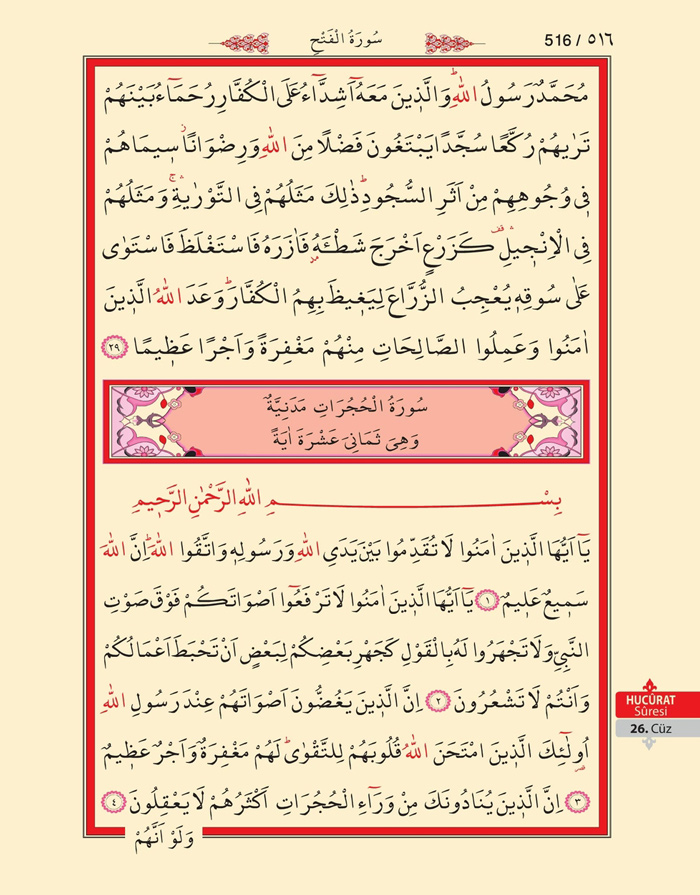 سُورَةُ الْفَتْحِ
516 / ٥١٦
مُحَمَّدٌ رَسُولُ اللّٰهِۜ وَالَّذٖينَ مَعَهُٓ اَشِدَّٓاءُ عَلَى الْكُفَّارِ رُحَمَٓاءُ بَيْنَهُمْ
تَرٰيهُمْ رُكَّعًا سُجَّدًا يَبْتَغُونَ فَضْلًا مِنَ اللّٰهِ وَرِضْوَانًاۘ سٖيمَاهُمْ
فٖي وُجُوهِهِمْ مِنْ اَثَرِ السُّجُودِۜ ذٰلِكَ مَثَلُهُمْ فِي التَّوْرٰيةِۚۛ وَمَثَلُهُمْ
فِي الْاِنْجٖيلِ۠ۛ كَزَرْعٍ اَخْرَجَ شَطْـَٔهُ فَاٰزَرَهُ فَاسْتَغْلَظَ فَاسْتَوٰى
عَلٰى سُوقِهٖ يُعْجِبُ الزُّرَّاعَ لِيَغٖيظَ بِهِمُ الْكُفَّارَۜ وَعَدَ اللّٰهُ الَّذٖينَ
اٰمَنُوا وَعَمِلُوا الصَّالِحَاتِ مِنْهُمْ مَغْفِرَةً وَاَجْرًا عَظٖيمًا ﴿٢٩﴾
سُورَةُ الْحُجُرَاتِ مَدَنِيَّةٌ
وَهِيَ ثَمَانِيَ عَشْرَةَ اٰيَةً
بِسْمِ اللّٰهِ الرَّحْمٰنِ الرَّحٖيمِ
يَٓا اَيُّهَا الَّذٖينَ اٰمَنُوا لَا تُقَدِّمُوا بَيْنَ يَدَيِ اللّٰهِ وَرَسُولِهٖ وَاتَّقُوا اللّٰهَۜ اِنَّ اللّٰهَ
سَمٖيعٌ عَلٖيمٌ ﴿١﴾ يَٓا اَيُّهَا الَّذٖينَ اٰمَنُوا لَا تَرْفَعُٓوا اَصْوَاتَكُمْ فَوْقَ صَوْتِ
النَّبِيِّ وَلَا تَجْهَرُوا لَهُ بِالْقَوْلِ كَجَهْرِ بَعْضِكُمْ لِبَعْضٍ اَنْ تَحْبَطَ اَعْمَالُكُمْ
وَاَنْتُمْ لَا تَشْعُرُونَ ﴿٢﴾ اِنَّ الَّذٖينَ يَغُضُّونَ اَصْوَاتَهُمْ عِنْدَ رَسُولِ اللّٰهِ
اُو۬لٰٓئِكَ الَّذٖينَ امْتَحَنَ اللّٰهُ قُلُوبَهُمْ لِلتَّقْوٰىۜ لَهُمْ مَغْفِرَةٌ وَاَجْرٌ عَظٖيمٌ
﴿٣﴾ اِنَّ الَّذٖينَ يُنَادُونَكَ مِنْ وَرَٓاءِ الْحُجُرَاتِ اَكْثَرُهُمْ لَا يَعْقِلُونَ ﴿٤﴾
وَلَوْ اَنَّهُمْ
HUCÛRAT
Sûresi
26. Cüz